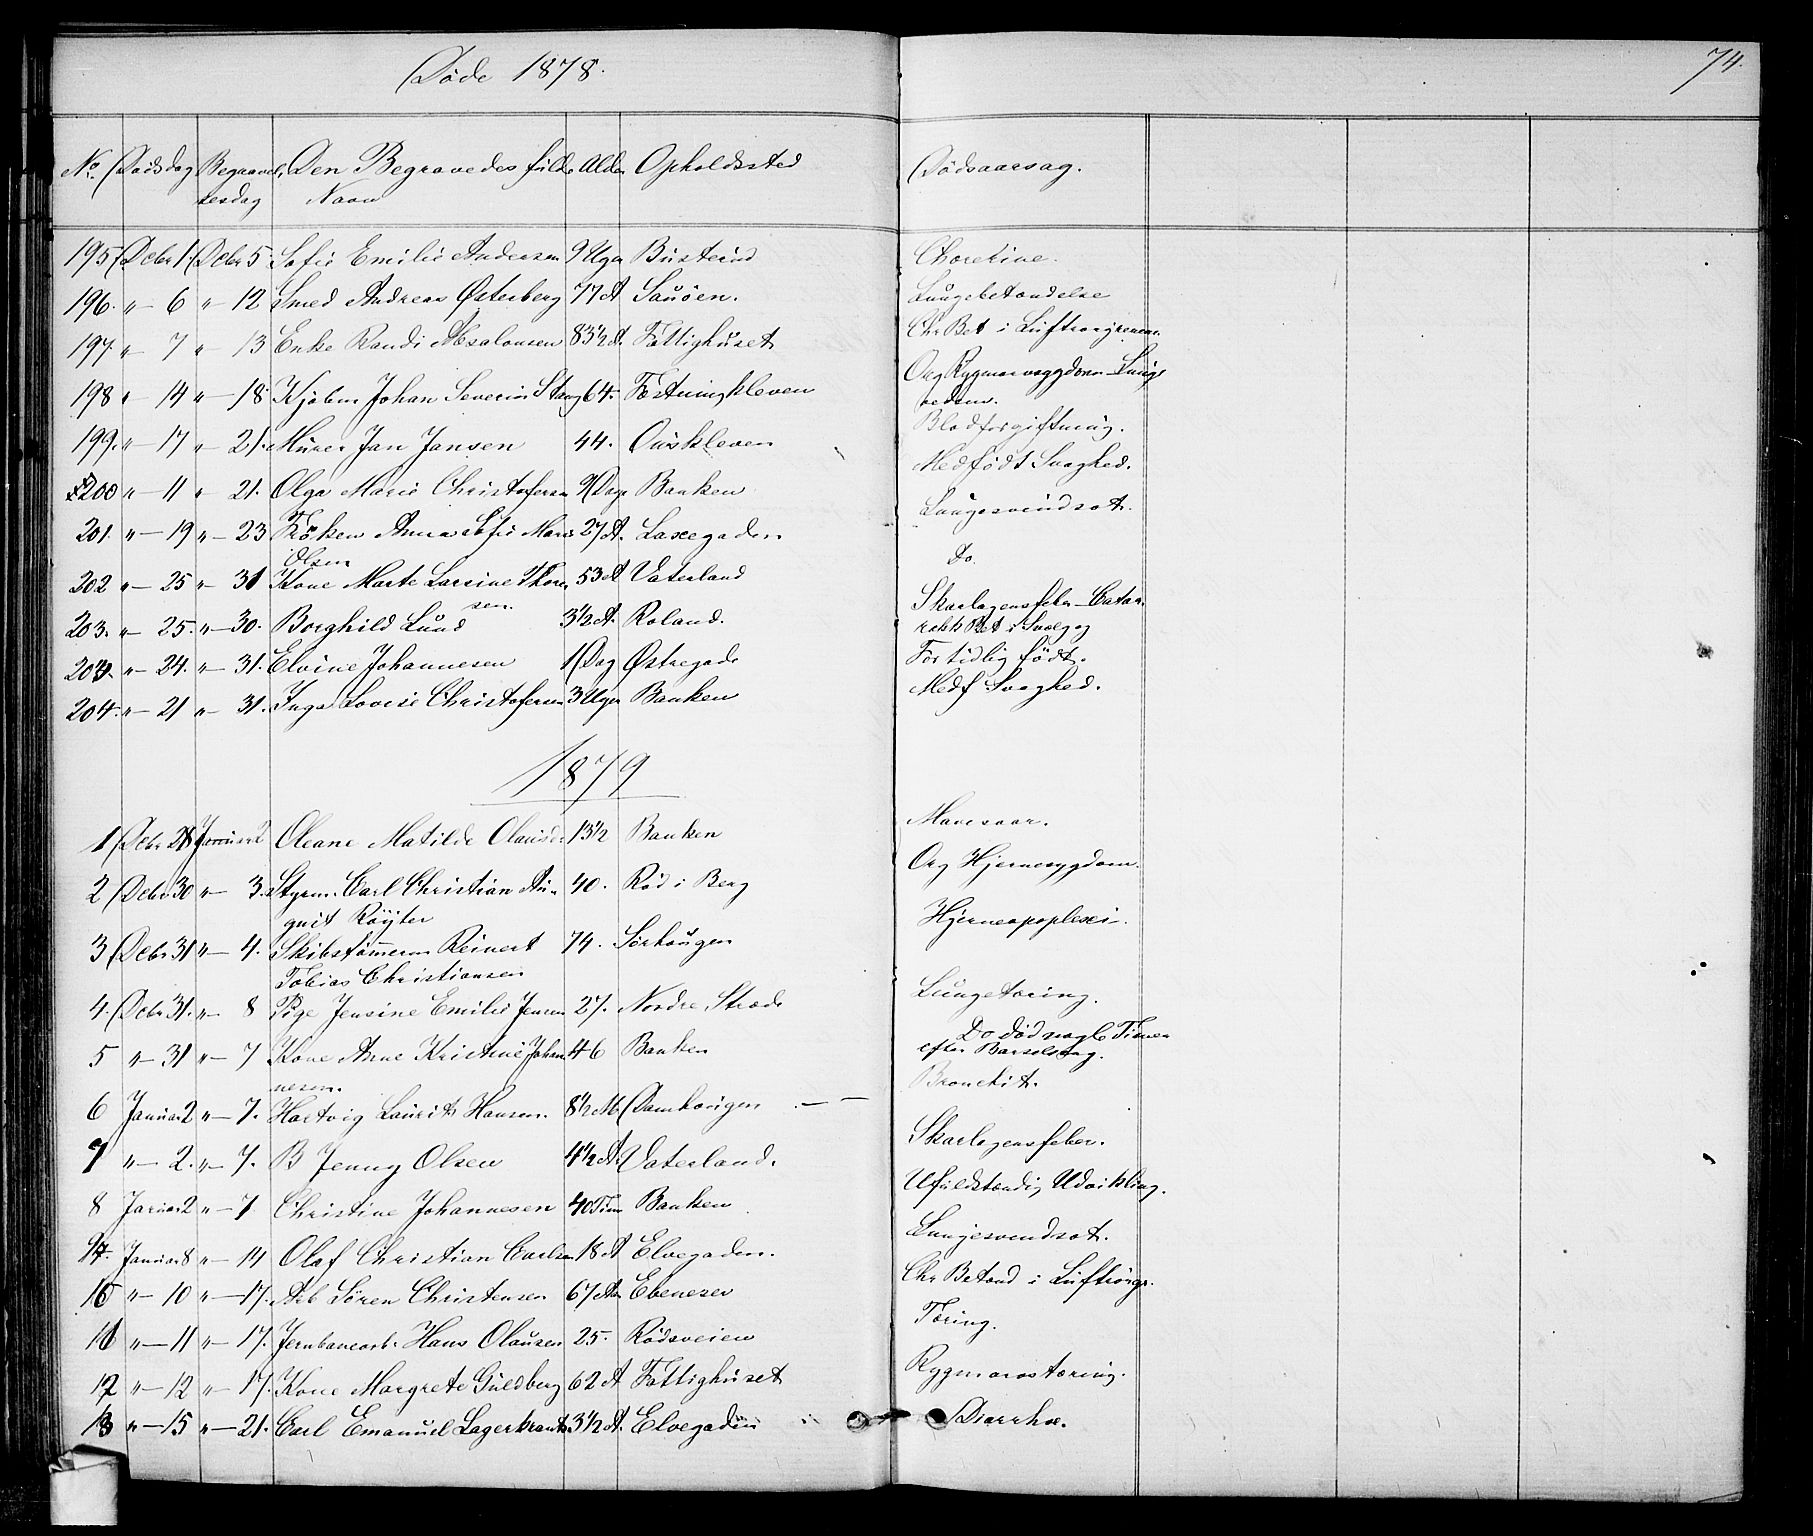 Døde 1878.
74.
No Dødsdag Begravel- Den Begravedes fulde Alder Opholdssted Dødsaarsag.
sesdag Navn
195 Debr 1. Debr 5. Sofie Emilie Andersen 9 Uger Busterud
196. " — 6 " — 12 Smed Andreas Østerberg 77 A Sauøen. Lungebetændelse
197. " — 7 " — 13 Enke Randi Absalonsen 83½ A. Fattighuset Chr Bet i Luftrørgrenene.
198 " — 14 " — 18. Kjøbm Johan Severin Stang 64. Fæstningkleven Org Rygmarvsygdom - Lunge
ødem.
199. " — 17 " — 21. Murer Jan Jansen 44. Ouskleven Blodforgiftning.
200 " — 11 " — 21. Olga Marie Christofersen 9 Dage Banken Medfødt Svaghed.
201. " — 19 " — 23 Frøken Anna Sofie Marie 27 A. Laxegaden Lungesvindsot.
Olsen
202 " — 25 " — 31 Kone Marte Larsine Thore 53 A Vaterland Do.
sen.
203. " — 25. " — 30. Borghild Lund 3½ A. Roland. Skarlagensfeber - Catar-
rahlsk Bet i Svælg og
203. " — 24. " — 31. Elvine Johannesen 1 Dag Østregade For tidlig født.
204. " — 21 " — 31. Inga Lovise Christofersen 3 Uger Banken Medf Svaghed.
1879
1 Debr 28 Januar 2 Oleane Matilde Olausd. 13½ Banken Mavesaar.
2 Debr 30 " — 3. Styrm. Carl Christian Au- 40. Rød i Berg Org Hjernesygdom.
gust Röyter
3 Debr 31 " — 4. Skibstømmerm Reinert 74. Sørhaugen Hjerneapoplexi.
Tobias Christiansen
4. Debr 31. " — 8 Pige Jensine Emilie Jensen 27. Nordre Stræde Lungetæring.
5 " — 31 " — 7 Kone Anne Kristine Johan 46 Banken Do død nogle Timer
nesen. efter Barselseng.
6 Januar 2 " — 7. Hartvig Laurits Hansen. 8½ M Damhaugen Bronchit.
7 " — 2. " — 7. B Jenny Olsen 4½ A. Vaterland. Skarlagensfeber.
8 Januar 2 " — 7 Christine Johannesen 40 Tim Banken Ufuldstændig Udvikling.
9. Januar 8 " — 14 Olaf Christian Carlsen 18 A Elvegaden. Lungesvendsot.
10 " — 10 " — 17. Arb Søren Christensen 67 Aar Ebeneser Chr Betænd i Luftrørgr.
11 " — 11 " — 17. Jernbanearb. Hans Olausen 25. Rødsveien Tæring.
12 " — 12 " — 17. Kone Margrete Guldberg 62 A Fattighuset Rygmarvstæring.
13 " — 15 " — 21. Carl Emanuel Lagerkrants. 3½ A. Elvegaden Diarrhæ.